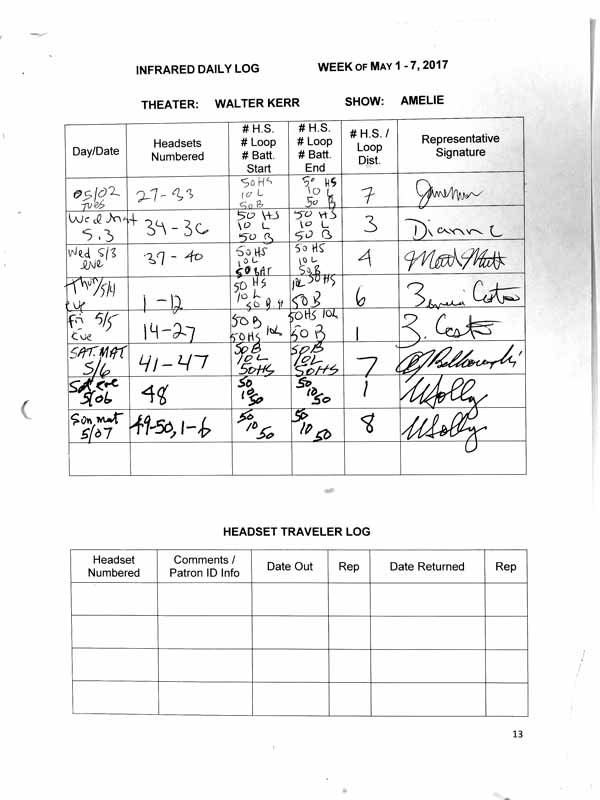 INFRARED DAILY LOG WEEK OF MAY 1 - 7, 2017
THEATER: WALTER KERR SHOW: AMELIE
Day/Date Headsets Numbered # H.S. # Loop # Batt. Start # H.S. # Loop # Batt. End # H.S. / Loop Dist. Representative Signature
05/02 TUES 27-33 50 HS 10 L 50 B 50 HS 10 L 50 B 7
Wed Mat 5.3 34-36 50 HS 10 L 50 B 50 HS 10 L 50 B 3 Dianne
Wed 5/3 eve 37-40 50 HS 10 L 50 BAT 50 HS 10 L 50 B 4
Thur/5/4 eve 1-12 50 HS 10 L 50 B 10L 50 HS 50 B 6
Fri 5/5 eve 14-27 50 B 50 HS 10L 50 HS 10L 50 B 1
SAT. MAT 5/6 41-47 50B 10L 50HS 50B 10L 50HS 7
Sat eve 5/06 48 50 10 50 50 10 50 1
Sun mat 5/07 49-50, 1-6 50 10 50 50 10 50 8
HEADSET TRAVELER LOG
Headset Numbered Comments / Patron ID Info Date Out Rep Date Returned Rep
13